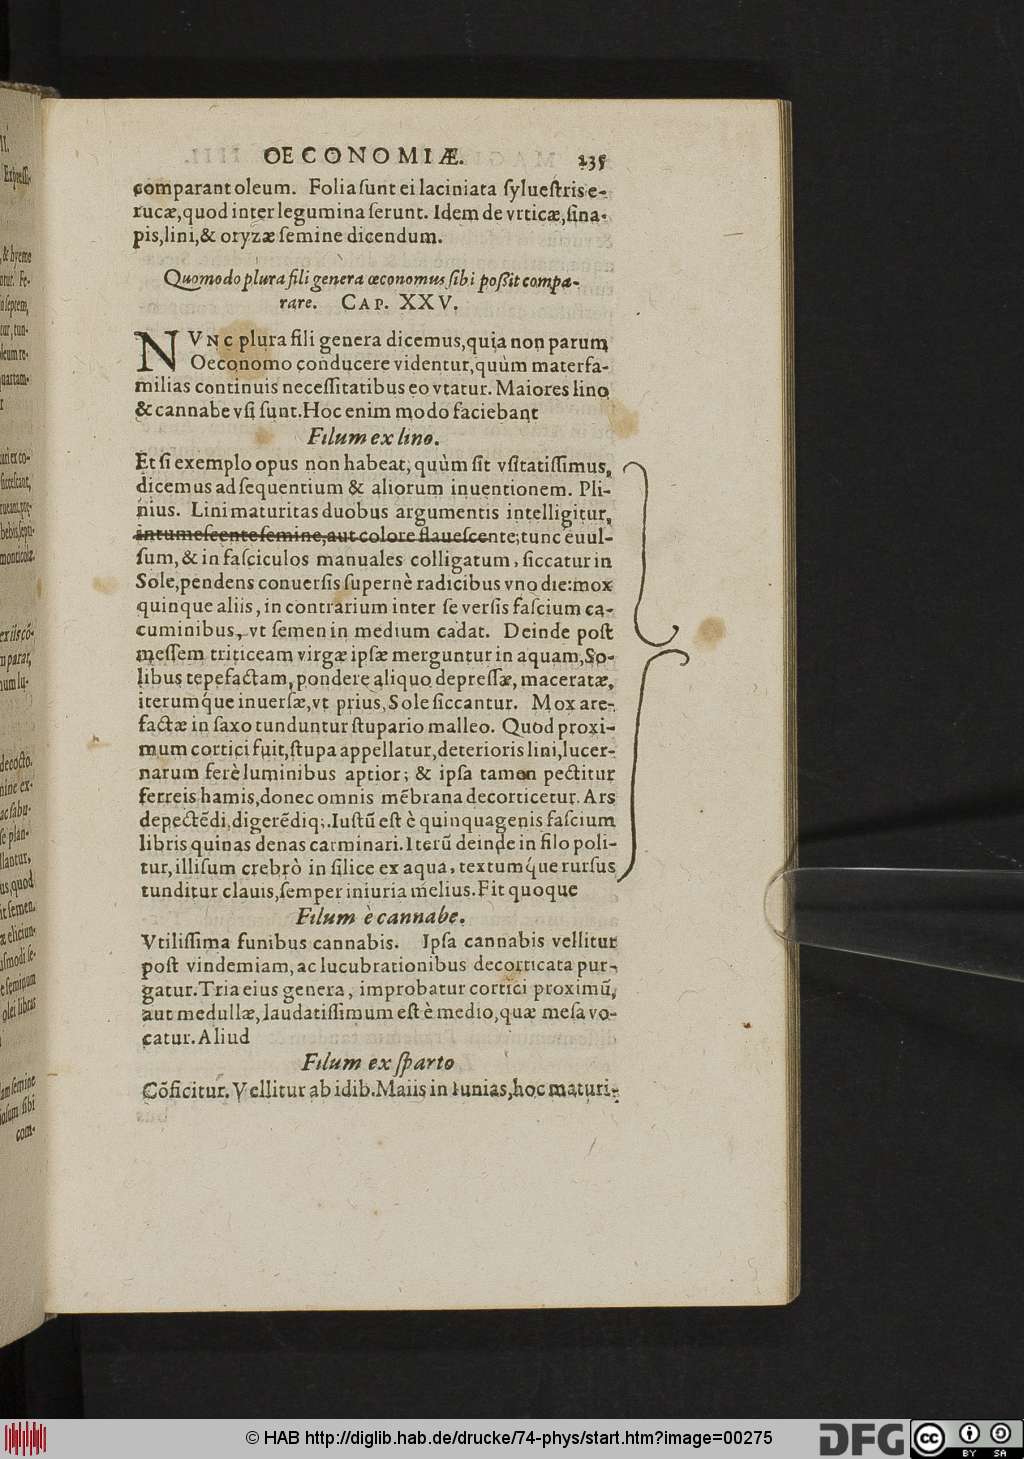 OECONOMIÆ. 235
comparant oleum. Folia sunt ei laciniata syluestris e-
rucæ, quod inter legumina serunt. Idem de vrticæ, sina-
pis, lini, & oryzæ semine dicendum.
Quomodo plura fili genera œconomus sibi possit compa-
rare. CAP. XXV.
NVNC plura fili genera dicemus, quia non parum
Oeconomo conducere videntur, quùm materfa-
milias continuis necessitatibus eo vtatur. Maiores lino
& cannabe vsi sunt. Hoc enim modo faciebant
Filum ex lino.
Et si exemplo opus non habeat, quùm sit vsitatissimus,
dicemus ad sequentium & aliorum inuentionem. Pli-
nius. Lini maturitas duobus argumentis intelligitur,
intumescente semine, aut colore flauescente; tunc euul-
sum, & in fasciculos manuales colligatum, siccatur in
Sole, pendens conuersis supernè radicibus vno die: mox
quinque aliis, in contrarium inter se versis fascium ca-
cuminibus, vt semen in medium cadat. Deinde post
messem triticeam virgæ ipsæ merguntur in aquam, So-
libus tepefactam, pondere aliquo depressæ, maceratæ,
iterumq́ue inuersæ, vt prius, Sole siccantur. Mox are-
factæ in saxo tunduntur stupario malleo. Quod proxi-
mum cortici fuit, stupa appellatur, deterioris lini, lucer-
narum ferè luminibus aptior; & ipsa tamen pectitur
ferreis hamis, donec omnis mẽbrana decorticetur. Ars
depectẽdi, digerẽdiq;. Iustũ est è quinquagenis fascium
libris quinas denas carminari. Iterũ deinde in filo poli-
tur, illisum crebrò in silice ex aqua, textumq́ue rursus
tunditur clauis, semper iniuria melius. Fit quoque
Filum è cannabe.
Vtilissima funibus cannabis. Ipsa cannabis vellitur
post vindemiam, ac lucubrationibus decorticata pur-
gatur. Tria eius genera, improbatur cortici proximũ,
aut medullæ, laudatissimum est è medio, quæ mesa vo-
catur. Aliud
Filum ex sparto
Cõficitur. Vellitur ab idib. Maiis in Iunias, hoc maturi-
© HAB http://diglib.hab.de/drucke/74-phys/start.htm?image=00275
DFG cc BY SA